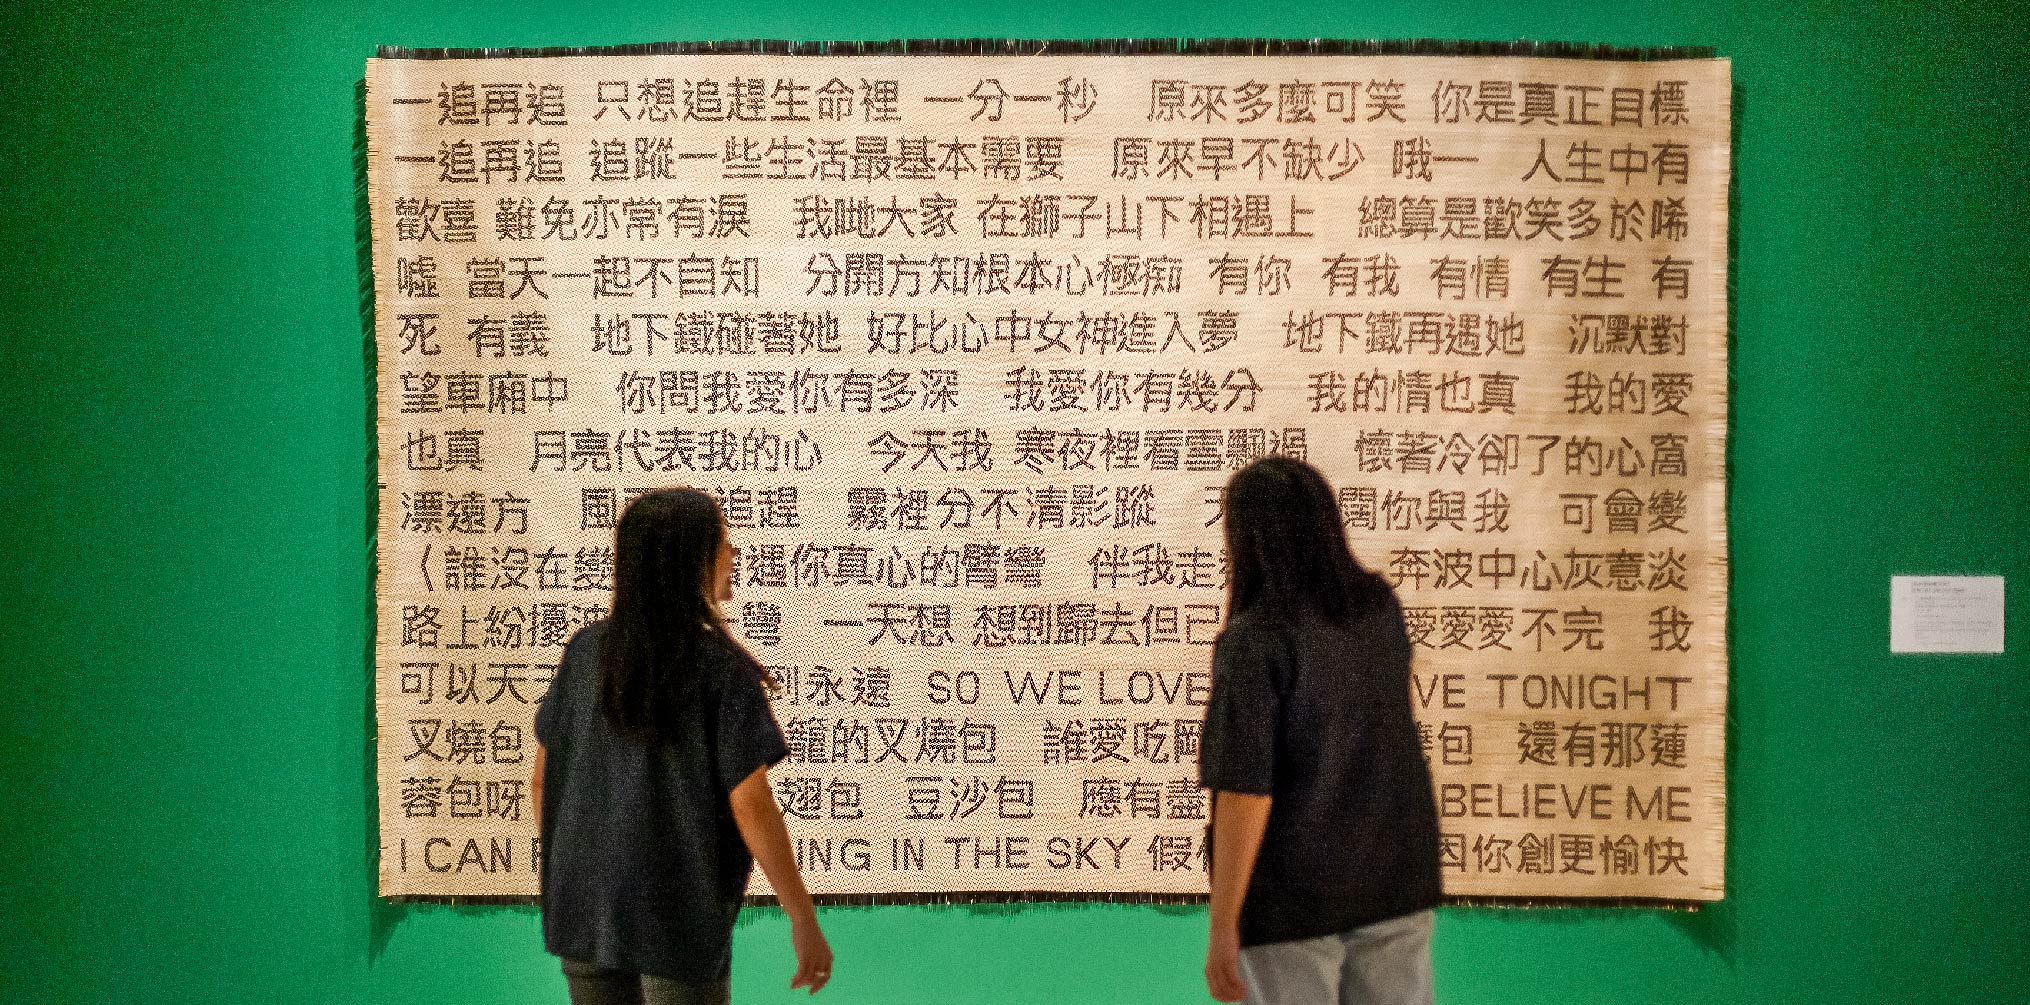 一追再追 只想追趕生命裡 一分一秒 原來多麼可笑 你是真正目標
一追再追 追蹤一些生活最基本需要 原來早不缺少 哦一 人生中有
歡喜 難免亦常有淚 我哋大家 在獅子山下相遇上 總算是歡笑多於唏
噓 當天一起不自知 分開方知根本心極痴 有你 有我 有情 有生 有
死 有義 地下鐵碰著她 好比心中女神進入夢 地下鐵再遇她 沉默對
望車廂中 你問我愛你有多深 我愛你有幾分 我的情也真 我的愛
也真 月亮代表我的心 今天我 寒夜裡看雪飄過 懷著冷卻了的心窩
漂遠方 風 追趕 霧裡分不清影蹤 闊你與我 可會變
（誰沒在變 遇你真心的臂彎 伴我走 奔波中心灰意淡
路上紛擾 一彎 一天想 想到歸去但已 愛愛愛不完 我
可以天天 到永遠 SO WE LOVE TONIGHT
叉燒包 籠的叉燒包 誰愛吃 包 還有那蓮
蓉包呀 翅包 豆沙包 應有盡 BELIEVE ME
I CAN IN THE SKY 假 因你創更愉快